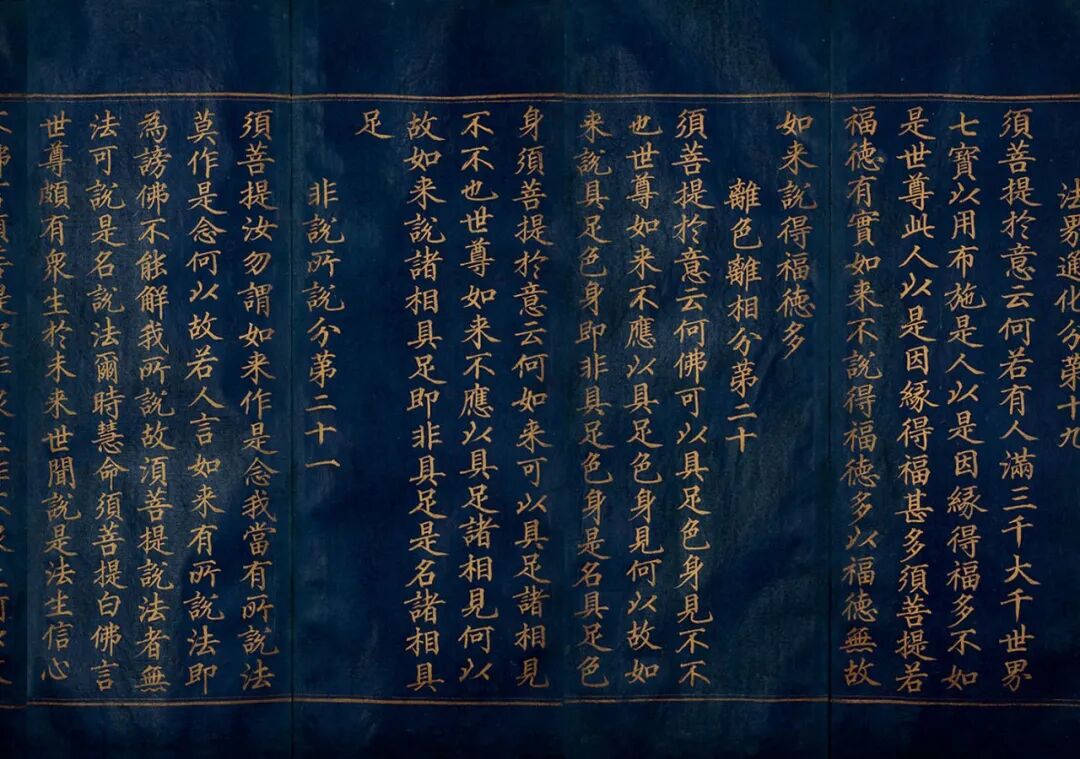 法界通化分第十九
須菩提於意云何若有人滿三千大千世界
七寶以用布施是人以是因緣得福多不如
是世尊此人以是因緣得福甚多須菩提若
福德有實如来不說得福德多以福德無故
如来說得福德多
離色離相分第二十
須菩提於意云何佛可以具足色身見不不
也世尊如来不應以具足色身見何以故如
来說具足色身即非具足色身是名具足色
身須菩提於意云何如来可以具足諸相見
不不也世尊如来不應以具足諸相見何以
故如来說諸相具足即非具足是名諸相具
足
非說所說分第二十一
須菩提汝勿謂如来作是念我當有所說法
莫作是念何以故若人言如来有所說法即
為謗佛不能解我所說故須菩提說法者無
法可說是名說法爾時慧命須菩提白佛言
世尊頗有衆生於未来世聞說是法生信心